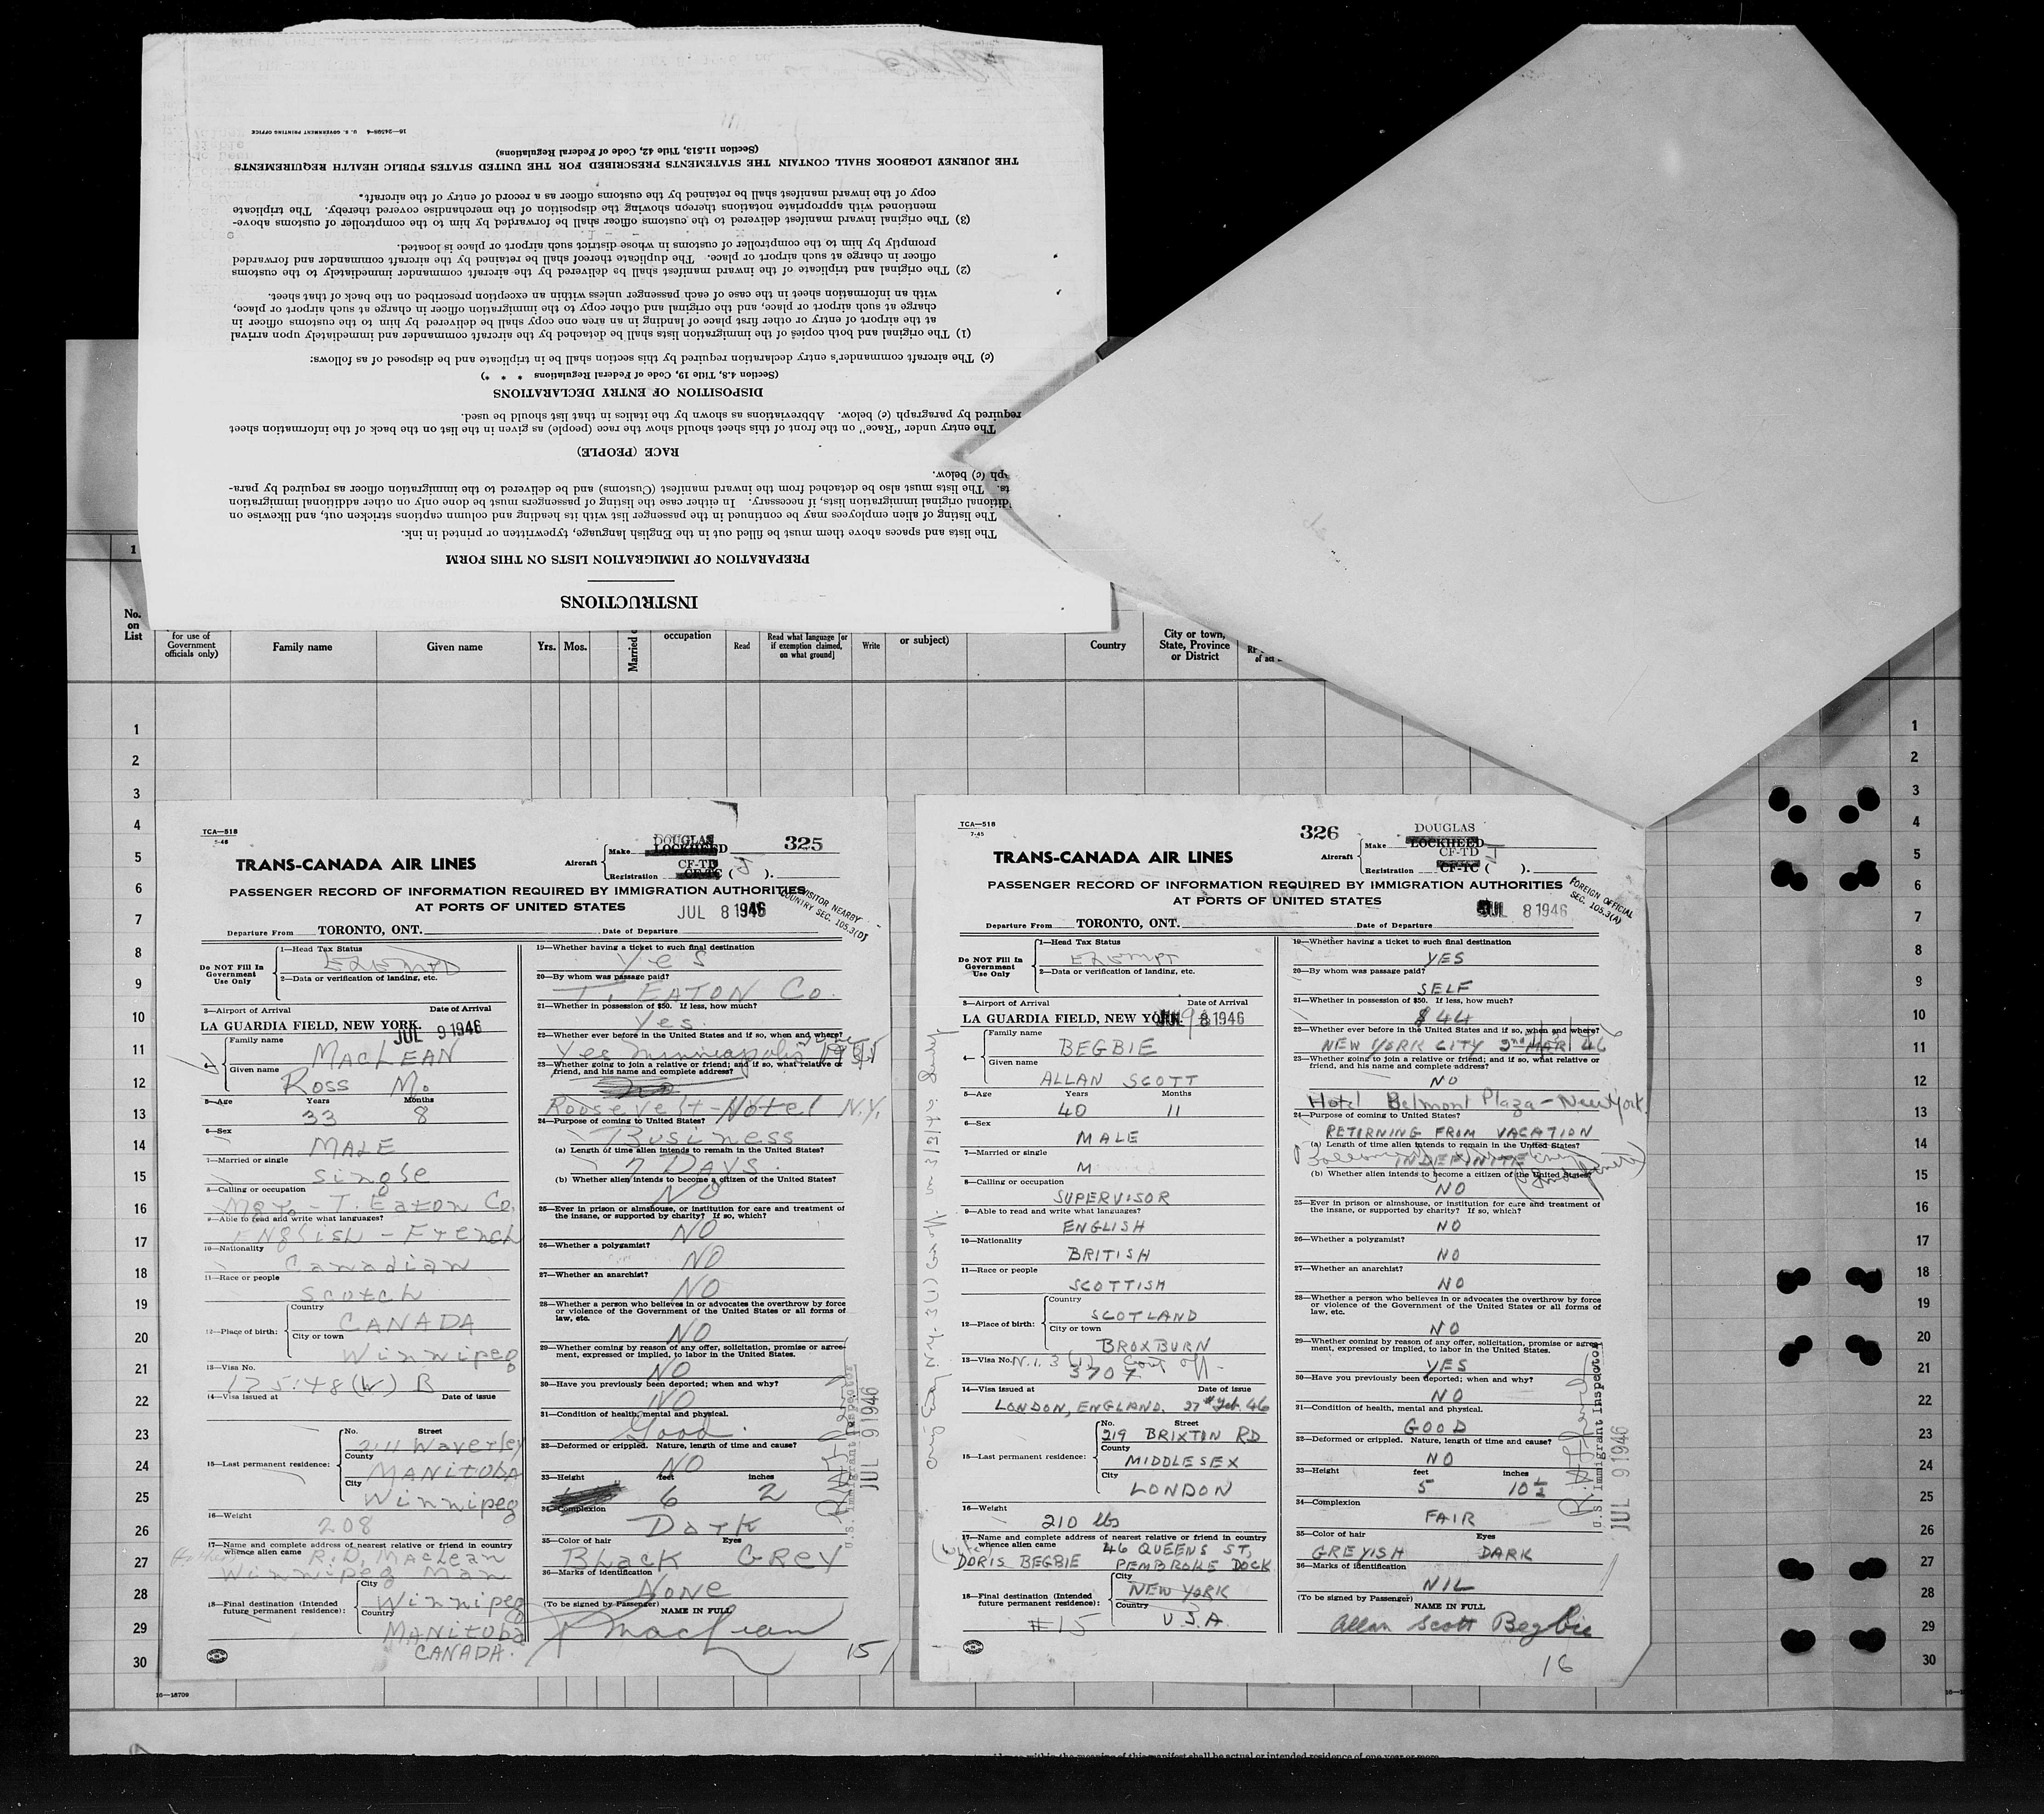 INSTRUCTIONS
PREPARATION OF IMMIGRATION LISTS ON THIS FORM
The lists and spaces above them must be filled out in the English language, typewritten or printed in ink.
The listing of alien employees may be continued in the passenger list with its heading and column captions stricken out, and likewise on
ditional original immigration lists, if necessary. In either case the listing of passengers must be done only on other additional immigration
ts. The lists must also be detached from the inward manifest (Customs) and be delivered to the immigration officer as required by para-
ph (c) below.
RACE (PEOPLE)
The entry under "Race" on the front of this sheet should show the race (people) as given in the list on the back of the information sheet
required by paragraph (c) below. Abbreviations as shown by the italics in that list should be used.
DISPOSITION OF ENTRY DECLARATIONS
(Section 4.8, Title 19, Code of Federal Regulations * * *)
(c) The aircraft commander's entry declaration required by this section shall be in triplicate and be disposed of as follows:
(1) The original and both copies of the immigration lists shall be detached by the aircraft commander and immediately upon arrival
at the airport of entry or other first place of landing in an area one copy shall be delivered by him to the customs officer in
charge at such airport or place, and the original and other copy to the immigration officer in charge at such airport or place,
with an information sheet in the case of each passenger unless within an exception prescribed on the back of that sheet.
(2) The original and triplicate of the inward manifest shall be delivered by the aircraft commander immediately to the customs
officer in charge at such airport or place. The duplicate thereof shall be retained by the aircraft commander and forwarded
promptly by him to the comptroller of customs in whose district such airport or place is located.
(3) The original inward manifest delivered to the customs officer shall be forwarded by him to the comptroller of customs above-
mentioned with appropriate notations thereon showing the disposition of the merchandise covered thereby. The triplicate
copy of the inward manifest shall be retained by the customs officer as a record of entry of the aircraft.
THE JOURNEY LOGBOOK SHALL CONTAIN THE STATEMENTS PRESCRIBED FOR THE UNITED STATES PUBLIC HEALTH REQUIREMENTS
(Section 11.513, Title 42, Code of Federal Regulations)
16—24598-4 U. S. GOVERNMENT PRINTING OFFICE
1
No. on List
for use of Government officials only)
Family name
Given name
Yrs. Mos.
Married o
occupation
Read
Read what language [or if exemption claimed, on what ground]
Write
or subject)
Country
City or town, State, Province or District
1 1
2 2
3 3
4 4
5 5
6 6
7 7
8 8
9 9
10 10
11 11
12 12
13 13
14 14
15 15
16 16
17 17
18 18
19 19
20 20
21 21
22 22
23 23
24 24
25 25
26 26
27 27
28 28
29 29
30 30
16—18709
TCA—518
7-45
TRANS-CANADA AIR LINES
Aircraft
Make DOUGLAS LOCKHEED
Registration CF-TD CF-TC ( J ).
325
PASSENGER RECORD OF INFORMATION REQUIRED BY IMMIGRATION AUTHORITIES
AT PORTS OF UNITED STATES
JUL 8 1946
VISITOR NEARBY
COUNTRY SEC. 105.3(D)
Departure From TORONTO, ONT. Date of Departure
Do NOT Fill In Government Use Only
1—Head Tax Status
EXEMPT
2—Data or verification of landing, etc.
3—Airport of Arrival Date of Arrival
LA GUARDIA FIELD, NEW YORK. JUL 9 1946
4—
Family name
MACLEAN
Given name
ROSS M.
5—Age Years Months
33 8
6—Sex
MALE
7—Married or single
Single
8—Calling or occupation
Mgr. - T. Eaton Co.
9—Able to read and write what languages?
English - French
10—Nationality
Canadian
11—Race or people
Scotch
12—Place of birth:
Country
CANADA
City or town
Winnipeg
13—Visa No.
175:48 (W) B
14—Visa issued at Date of issue
15—Last permanent residence:
No. Street
211 Waverley
County
MANITOBA
City
Winnipeg
16—Weight
208
17—Name and complete address of nearest relative or friend in country
whence alien came R.D. MacLean
(father) Winnipeg Man
18—Final destination (Intended future permanent residence):
City
Winnipeg
Country
MANITOBA
CANADA.
19—Whether having a ticket to such final destination
Yes
20—By whom was passage paid?
T. EATON Co.
21—Whether in possession of $50. If less, how much?
Yes.
22—Whether ever before in the United States and if so, when and where?
Yes Minneapolis
23—Whether going to join a relative or friend; and if so, what relative or
friend, and his name and complete address?
Roosevelt - Hotel N.Y.
24—Purpose of coming to United States?
Business
(a) Length of time alien intends to remain in the United States?
7 DAYS.
(b) Whether alien intends to become a citizen of the United States?
NO
25—Ever in prison or almshouse, or institution for care and treatment of
the insane, or supported by charity? If so, which?
NO
26—Whether a polygamist?
NO
27—Whether an anarchist?
NO
28—Whether a person who believes in or advocates the overthrow by force
or violence of the Government of the United States or all forms of
law, etc.
NO
29—Whether coming by reason of any offer, solicitation, promise or agree-
ment, expressed or implied, to labor in the United States.
NO
30—Have you previously been deported; when and why?
NO
31—Condition of health, mental and physical.
Good.
32—Deformed or crippled. Nature, length of time and cause?
NO
33—Height feet inches
6 2
34—Complexion
Dark
35—Color of hair Eyes
Black Grey
36—Marks of identification
None
(To be signed by Passenger) NAME IN FULL
MacLean
U.S. Immigrant Inspector
JUL 9 1946
15
TCA—518
7-45
TRANS-CANADA AIR LINES
326
Aircraft
Make DOUGLAS LOCKHEED
Registration CF-TD CF-TC ( ).
PASSENGER RECORD OF INFORMATION REQUIRED BY IMMIGRATION AUTHORITIES
AT PORTS OF UNITED STATES
JUL 8 1946
FOREIGN OFFICIAL
SEC. 105.3(A)
Departure From TORONTO, ONT. Date of Departure
Do NOT Fill In Government Use Only
1—Head Tax Status
EXEMPT
2—Data or verification of landing, etc.
3—Airport of Arrival Date of Arrival
LA GUARDIA FIELD, NEW YORK. JUL 8 1946
4—
Family name
BEGBIE
Given name
ALLAN SCOTT
5—Age Years Months
40 11
6—Sex
MALE
7—Married or single
M
8—Calling or occupation
SUPERVISOR
9—Able to read and write what languages?
ENGLISH
10—Nationality
BRITISH
11—Race or people
SCOTTISH
12—Place of birth:
Country
SCOTLAND
City or town
BROXBURN
13—Visa No. N.I. 3 (1) Govt off-
3707
14—Visa issued at Date of issue
LONDON, ENGLAND. 27th Feb. 46
15—Last permanent residence:
No. Street
219 BRIXTON RD
County
MIDDLESEX
City
LONDON
16—Weight
210 lbs
17—Name and complete address of nearest relative or friend in country
whence alien came 46 QUEENS ST,
(wife) DORIS BEGBIE PEMBROKE DOCK
18—Final destination (Intended future permanent residence):
City
NEW YORK
Country
U.S.A.
#15
19—Whether having a ticket to such final destination
YES
20—By whom was passage paid?
SELF
21—Whether in possession of $50. If less, how much?
$44
22—Whether ever before in the United States and if so, when and where?
NEW YORK CITY 2nd MAR 46
23—Whether going to join a relative or friend; and if so, what relative or
friend, and his name and complete address?
NO
Hotel Belmont Plaza - New York
24—Purpose of coming to United States?
RETURNING FROM VACATION
(a) Length of time alien intends to remain in the United States?
INDEFINITE
(b) Whether alien intends to become a citizen of the United States?
NO
25—Ever in prison or almshouse, or institution for care and treatment of
the insane, or supported by charity? If so, which?
NO
26—Whether a polygamist?
NO
27—Whether an anarchist?
NO
28—Whether a person who believes in or advocates the overthrow by force
or violence of the Government of the United States or all forms of
law, etc.
NO
29—Whether coming by reason of any offer, solicitation, promise or agree-
ment, expressed or implied, to labor in the United States.
YES
30—Have you previously been deported; when and why?
NO
31—Condition of health, mental and physical.
GOOD
32—Deformed or crippled. Nature, length of time and cause?
NO
33—Height feet inches
5 10 1/2
34—Complexion
FAIR
35—Color of hair Eyes
GREYISH DARK
36—Marks of identification
NIL
(To be signed by Passenger)
NAME IN FULL
Allan Scott Begbie
U.S. Immigrant Inspector
JUL 9 1946
16